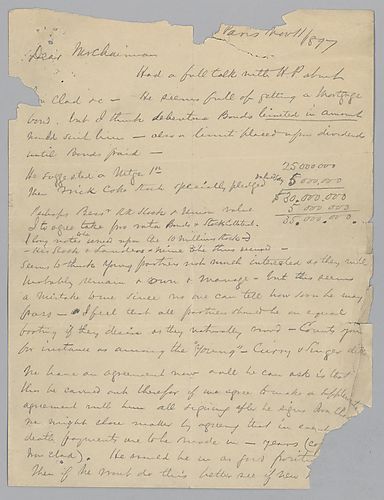 Paris Nov 11/97
Dear Mr Chairman
Had a full talk with H.P. about
Iron Clad &c — He seems full of getting a Mortgage
bond, but I think debenture Bonds limited in amount
would suit him — also a limit placed upon dividend
until Bonds paid —
He suggested a Mtge 1st 25 000 000
the Frick Coke Stock specially pledged 5 000,000
$30,000.000
5 000 000
35.000.000
Perhaps Bess' RR Stock & Union
I to agree take pro rata Bonds & Stock
Seems to think young partners not much interested as they will
probably remain & own & manage — but this seems
a mistake to me since no one can tell how soon he may
pass — I feel that all partners should be on equal
footing if they desire as they naturally would — Counts you
for instance as among the "young" — Curry & Singer
We have an agreement now & all he can ask is that
this be carried out therefor if we agree to make a
agreement with him all signing after he signs Iron Clad
we might close matter by agreeing that in case
death payments are to be made in — years
Iron Clad). He would be in as good
Then if he won't do this better see if new